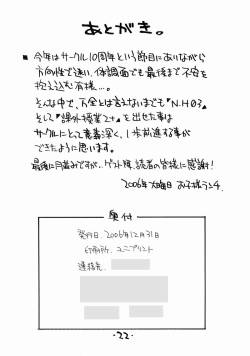 あとがき。
■ 今年はサークル10周年という節目にありながら
方向性で迷い、体調面でも最後まで不安を
抱え込む有様…。
そんな中で、万全とは言えないまでも『N.H03』
そして『課外授業2+』を出せた事は
サークルにとって意義深く、1歩前進する事が
できたように思います。
最後に月並みですが、ゲスト様、読者の皆様に感謝!
2006年 大晦日 お子様ランチ
奥付
発行日 2006年12月31日
印刷所 ユニプリント
連絡先
-22-